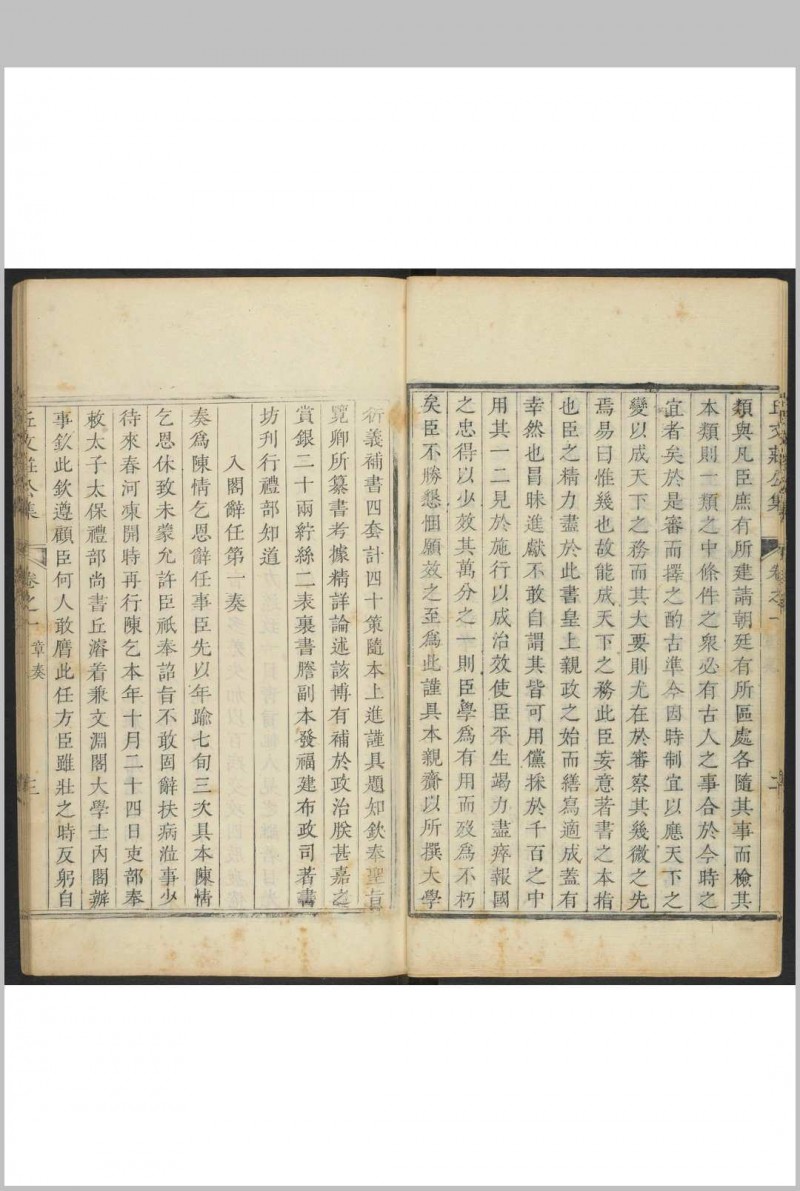 類與凡臣庶有所建請朝廷有所區處各隨其事而檢其
本類則一類之中條件之衆必有古人之事合於今時之
宜者矣於是審而擇之酌古準今因時制宜以應天下之
變以成天下之務而其大要則尤在於審察其幾微之先
焉易曰惟幾也故能成天下之務此臣妄意著書之本指
也臣之精力盡於此書皇上親政之始而繕寫適成蓋有
幸然也冒昧進獻不敢自謂其皆可用儻採於千百之中
用其一二見於施行以成治效使臣平生竭力盡瘁報國
之忠得以少效其萬分之一則臣學爲有用而歿爲不朽
矣臣不勝懇悃願效之至爲此謹具本親齎以所撰大學
衍義補書四套計四十策隨本上進謹具題知欽奉聖旨
覽卿所纂書考據精詳論述該博有補於政治朕甚嘉之
賞銀二十兩紵絲二表裏書謄副本發福建布政司著書
坊刊行禮部知道
入閣辭任第一奏
奏爲陳情乞恩辭任事臣先以年踰七旬三次具本陳情
乞恩休致未蒙允許臣祇奉詔旨不敢固辭扶病涖事少
待來春河凍開時再行陳乞本年十月二十四日吏部奉
敕太子太保禮部尚書丘濬着兼文淵閣大學士內閣辦
事欽此欽遵顧臣何人敢膺此任方臣雖壯之時反躬自
丘文莊公集 卷之一 章奏 三